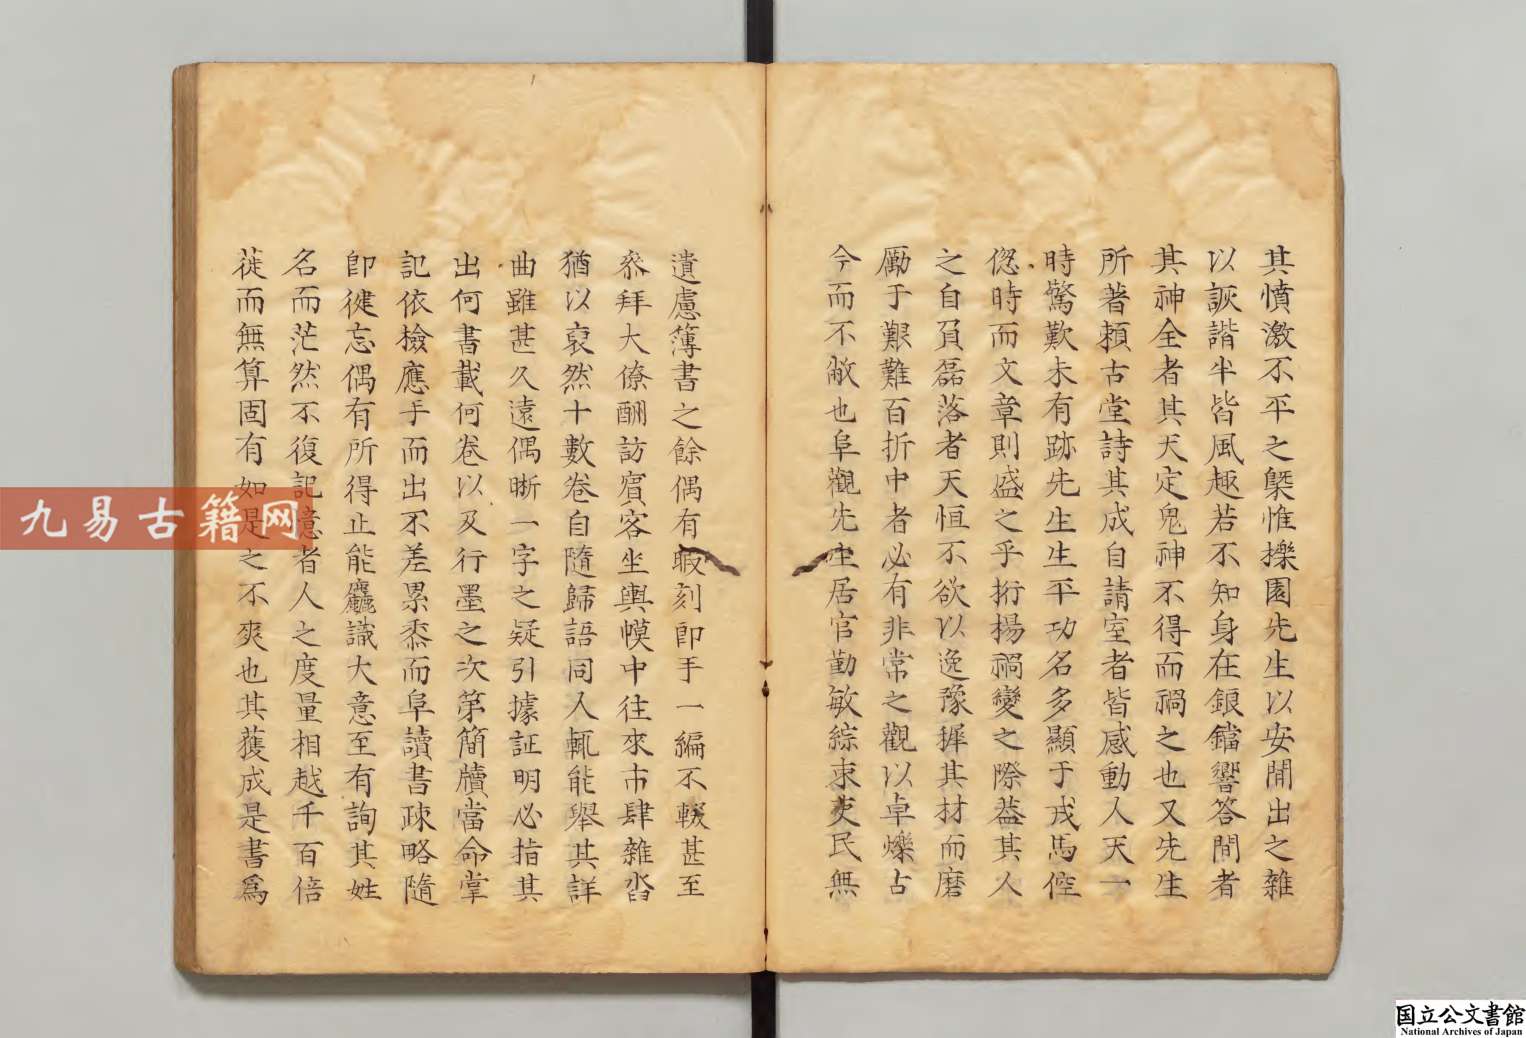 其憤激不平之槩惟櫟園先生以安閒出之雜
以詼諧半皆風趣若不知身在鋃鐺響答間者
其神全者其天定鬼神不得而禍之也又先生
所著賴古堂詩其成自請室者皆感動人天一
時驚歎未有跡先生生平功名多顯于戎馬倥
偬時而文章則盛之乎桁楊禍變之際葢其人
之自負磊落者天恒不欲以逸豫摧其材而磨
勵于艱難百折中者必有非常之觀以卓爍古
今而不敝也阜觀先生居官勤敏綜束吏民無
遺慮簿書之餘偶有暇刻卽手一編不輟甚至
叅拜大僚酬訪賓客坐輿幙中往來市肆雜沓
猶以裒然十數卷自隨歸語同人輒能舉其詳
曲雖甚久遠偶晰一字之疑引據証明必指其
出何書載何卷以及行墨之次第簡牘當命掌
記依檢應手而出不差累黍而阜讀書疎略隨
卽健忘偶有所得止能麤識大意至有詢其姓
名而茫然不復記憶者人之度量相越千百倍
蓰而無算固有如是之不爽也其獲成是書爲
九易古籍网
国立公文書館
National Archives of Japan